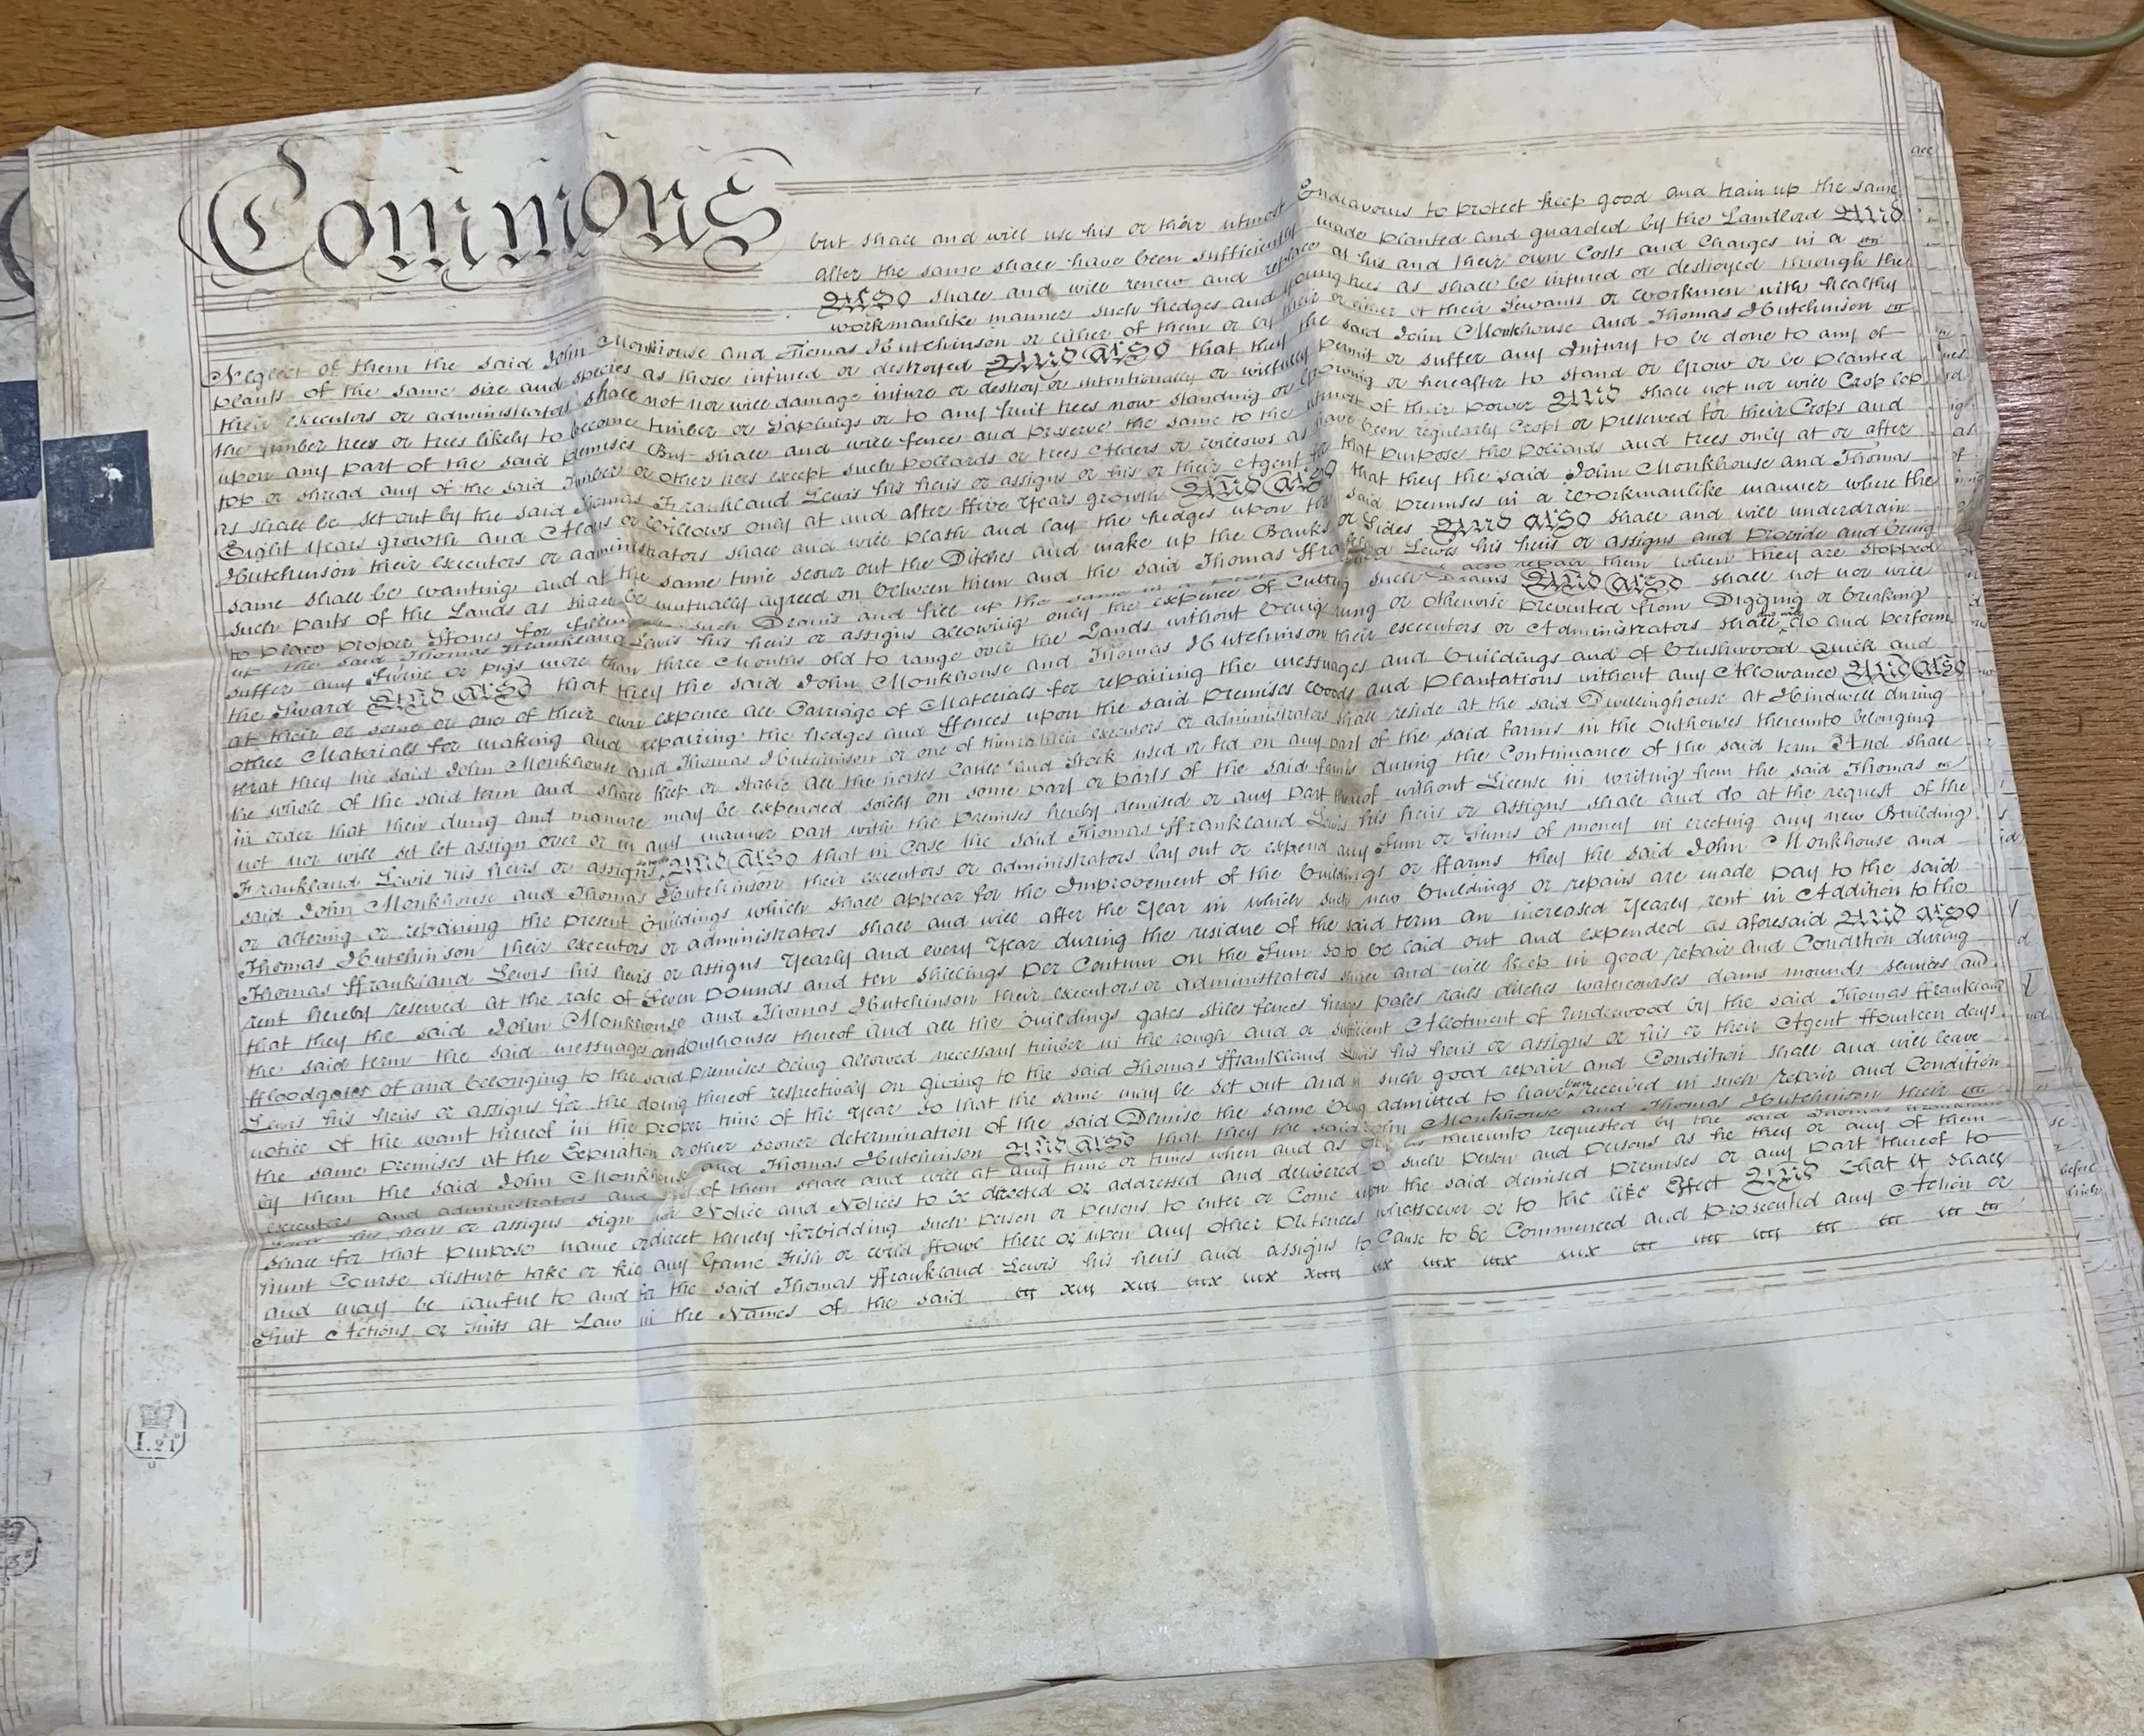 Commons
but shall and will use his or their utmost Endeavours to protect keep good and train up the same
after the same shall have been sufficiently made planted and guarded by the Landlord AND
ALSO shall and will renew and replace at his and their own Costs and Charges in a
workmanlike manner such hedges and young trees as shall be injured or destroyed through the
Neglect of them the said John Monkhouse and Thomas Hutchinson or either of them or by their or either of their Servants or Workmen with healthy
plants of the same size and species as those injured or destroyed AND ALSO that they the said John Monkhouse and Thomas Hutchinson
their executors or administrators shall not nor will damage injure or destroy or intentionally or willfully permit or suffer any Injury to be done to any of
the timber trees or trees likely to become timber or Saplings or to any fruit trees now standing or growing or hereafter to stand or Grow or be planted
upon any part of the said premises But shall and will fence and preserve the same to the utmost of their power AND shall not nor will Crop lop
top or shread any of the said Timber or other trees except such Pollards or trees Alders or Willows as have been regularly Cropt or preserved for their Crops and
as shall be set out by the said Thomas Frankland Lewis his heirs or assigns or his or their Agent for that purpose the Pollards and trees only at or after
Eight Years growth and Alders or Willows only at and after ffive Years growth AND ALSO that they the said John Monkhouse and Thomas
Hutchinson their executors or administrators shall and will plash and lay the hedges upon the said premises in a Workmanlike manner where the
same shall be wanting and at the same time scour out the Ditches and make up the Banks or Sides AND ALSO shall and will underdrain
such parts of the Lands as shall be mutually agreed on between them and the said Thomas Frankland Lewis his heirs or assigns and Provide and bring
to place proper Stones for filling such Drains and fill up the same in a also repair them when they are stopped
up the said Thomas Frankland Lewis his heirs or assigns allowing only the expence of Cutting such Drains AND ALSO shall not nor will
suffer any Swine or pigs more than three Months old to range over the Lands without being rung or otherwise prevented from Digging or breaking
the Sward AND ALSO that they the said John Monkhouse and Thomas Hutchinson their executors or Administrators shall and will do and perform
at their or some or one of their own expence all Carriage of Materials for repairing the messuages and buildings and of Brushwood Quick and
other Materials for making and repairing the hedges and ffences upon the said premises Woods and Plantations without any Allowance AND ALSO
that they the said John Monkhouse and Thomas Hutchinson or one of them their executors or administrators shall reside at the said Dwellinghouse at Hindwell during
the whole of the said term and shall keep or stable all the horses Cattle and Stock used or fed on any part of the said farms in the Outhouses thereunto belonging
in order that their dung and manure may be expended solely on some part or parts of the said farms during the Continuance of the said term And shall
not nor will set let assign over or in any manner part with the premises hereby demised or any part thereof without License in writing from the said Thomas
Frankland Lewis his heirs or assigns AND ALSO that in Case the said Thomas Ffrankland Lewis his heirs or assigns shall and do at the request of the
said John Monkhouse and Thomas Hutchinson their executors or administrators lay out or expend any Sum or Sums of money in erecting any new Building
or altering or repairing the present Buildings which shall appear for the Improvement of the Buildings or ffarms they the said John Monkhouse and
Thomas Hutchinson their executors or administrators shall and will after the Year in which such new buildings or repairs are made pay to the said
Thomas Ffrankland Lewis his heirs or assigns Yearly and every Year during the residue of the said term an increased Yearly rent in Addition to the
rent hereby reserved at the rate of Seven Pounds and ten Shillings per Centum on the Sum so to be laid out and expended as aforesaid AND ALSO
that they the said John Monkhouse and Thomas Hutchinson their executors or Administrators shall and will keep in good repair and Condition during
the said term the said messuages and Outhouses thereof and all the buildings gates stiles fences hedges pales rails ditches watercourses dams mounds and
floodgates of and belonging to the said premises being allowed necessary timber in the rough and a sufficient Allotment of Underwood by the said Thomas Ffrankland
Lewis his heirs or assigns for the doing thereof respectively on giving to the said Thomas Ffrankland Lewis his heirs or assigns or his or their Agent ffourteen days
notice of the want thereof in the proper time of the Year so that the same may be set out and in such good repair and Condition shall and will leave
the same premises at the Expiration or other sooner determination of the said Demise the same being admitted to have been received in such repair and Condition
by them the said John Monkhouse and Thomas Hutchinson AND ALSO that they the said John Monkhouse and Thomas Hutchinson their
executors and administrators and of them shall and will at any time or times when and as thereunto requested by the said Thomas Frankland
his heirs or assigns sign Notice and Notices to be directed or addressed and delivered to such Person and Persons as he they or any of them
shall for that purpose name or direct thereby forbidding such Person or Persons to enter or Come upon the said demised Premises or any part thereof to
hunt Course disturb take or kill any Game Fish or wild ffowl there or upon any other Pretences whatsoever or to the like Effect AND that it shall
and may be lawful to and for the said Thomas Ffrankland Lewis his heirs and assigns to Cause to be Commenced and prosecuted any Action or
Suit Actions or Suits at Law in the Names of the said